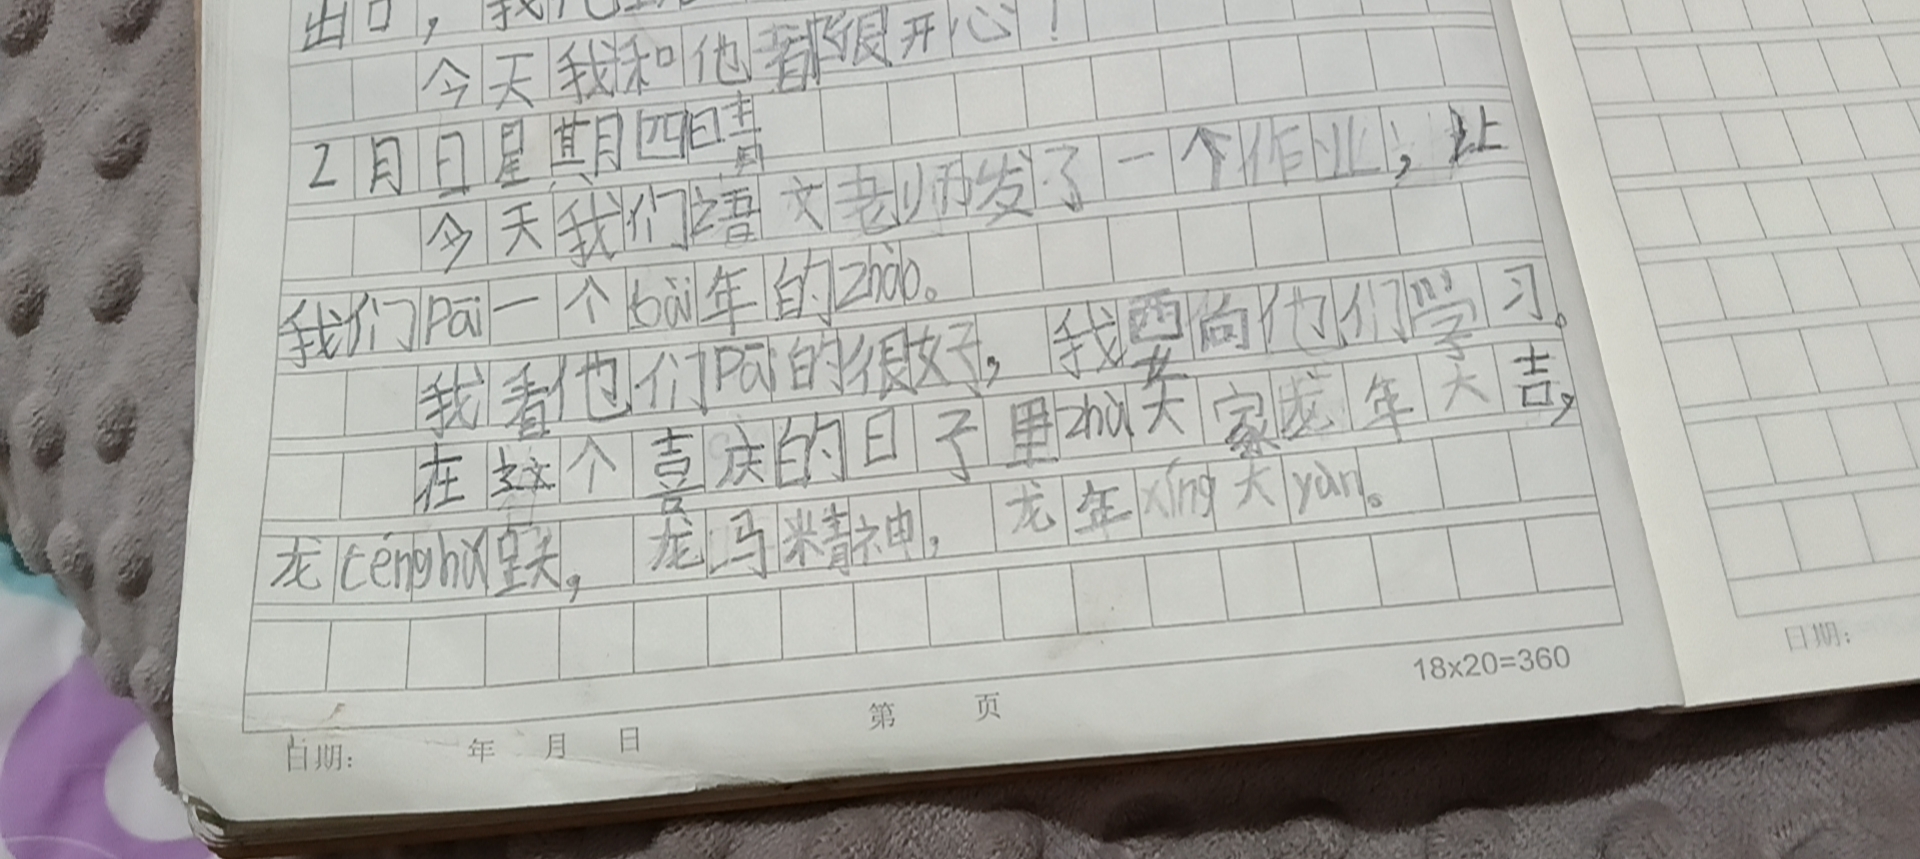 出口，我
今天我和他都很开心！
2月日星期四晴
今天我们语文老师发了一个作业，让
我们Pāi一个bài年的zhào。
我看他们Pāi的很好，我要向他们学习。
在这个喜庆的日子里zhù大家龙年大吉，
龙téng hǔ跃，龙马精神，龙年xíng大yàn。
18x20=360
第 页
日期： 年 月 日
日期：